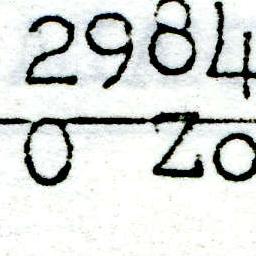 2984
0 Zo